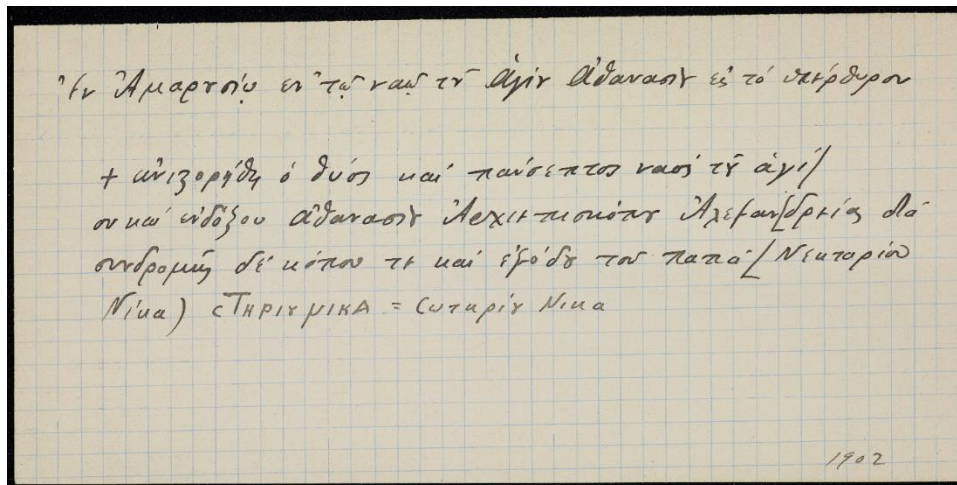 Ἐν Ἀμαρυσίῳ ἐν τῷ ναῷ τȣ̃ ἁγίȣ Ἀθανασίȣ εἰς τό ὑπέρθυρον
+ ἀνιζορήθη ὁ θύος καί πάνσεπτος ναός τȣ̃ ἁγί/
ου καί ἐνδόξου Ἀθανασίȣ Ἀρχιεπισκόπȣ Ἀλεξαν/δρείας διά
συνδρομῆς δέ κόπου τε καί ἐξόδȣ τοῦ παπᾶ / Νεκταρίου
Νίκα) CΤΗΡΙȣ ΜΙΚΑ = Cωτηρίȣ Νικα
1902